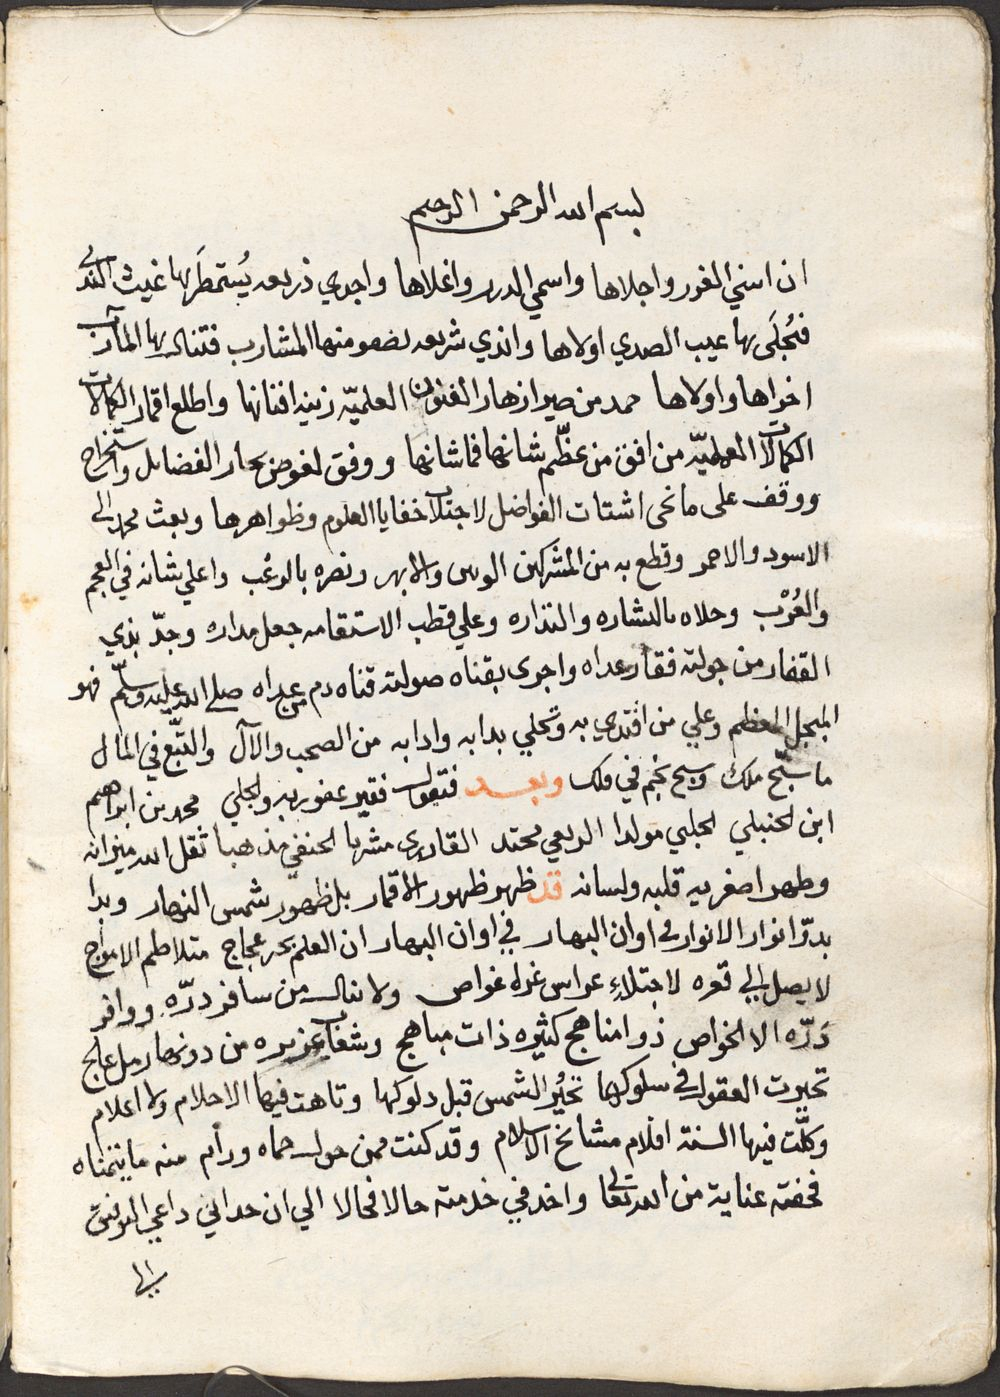 بسم الله الرحمن الرحيم
ان اسني الغرر واجلاها واسمي الدرر واغلاها واجدي ذريعه يُستمطَر بها غيث الندي
فتُجلَى بها عيب الصدي اولاها واندي شريعه تصفو منها المشارب فتنال بها المآرب
اخراها واولاها حمد من صير ازهار الفنون العلميّه زينه افنانها واطلع اقمار الكمالات
الكمالات العلميّه من افق من عظّم شانها فما شانها ووفق لغوص بحار الفضايل واستخراج
ووقف على مانحى اشتات الفواضل لاجتلاب خفايا العلوم وظواهرها وبعث محمد الي
الاسود والاحمر وقطع به من المشركين الوتين والابهر ونصره بالرعُب واعلي شانه في العجم
والعُرْب وحلاه بالبشاره والنذاره وعلي قطب الاستقامه جعل مداره وجدّ بذي
القفار من جولته فقار عداه واجرى بقناه صولته قناه دم من عداه صلي الله عليه وسلّم فهو
المبجل المعظم وعلي من اقتدي به وتحلي بدابه وادابه من الصحب والآل والتبّع في المال
ما سبّح ملك وسبح نجم في فلك وبعد فتقول فقير عفو ربه ولجلي محمد بن ابراهيم
ابن الحنبلي الحلبي مولدا الربعي محتد القادري مشربا الحنفي مذهبا ثقل الله ميزانه
وطهر اصغريه قلبه ولسانه قد ظهر ظهور الاقمار بل ظهور شمس النهار وبدا
بدوّ انوار الانوار في اوان البهار في اوان البهار ان العلم بحر عجاج متلاطم الامواج
لا يصل الي قعره لاجتلاءِ عرايس غرله غواص ولا ينال من سافر درّه ووافر
دَرّه الا الخواص ذو امناهج كثيره ذات مباهج وشعاب غزيره من دونها رمل عالج
تحيرت العقول في سلوكها تحيُر الشمس قبل دلوكها وتاهت فيها الاحلام ولا اعلام
وكلّت فيها السنة اقلام مشايخ الاسلام وقد كنت ممن حول حماه ورام منه ما يتمناه
فحفته عناية من الله تعالي واخذ في خدمته حالا فحالا الي ان حداني داعي التوفيق
الي